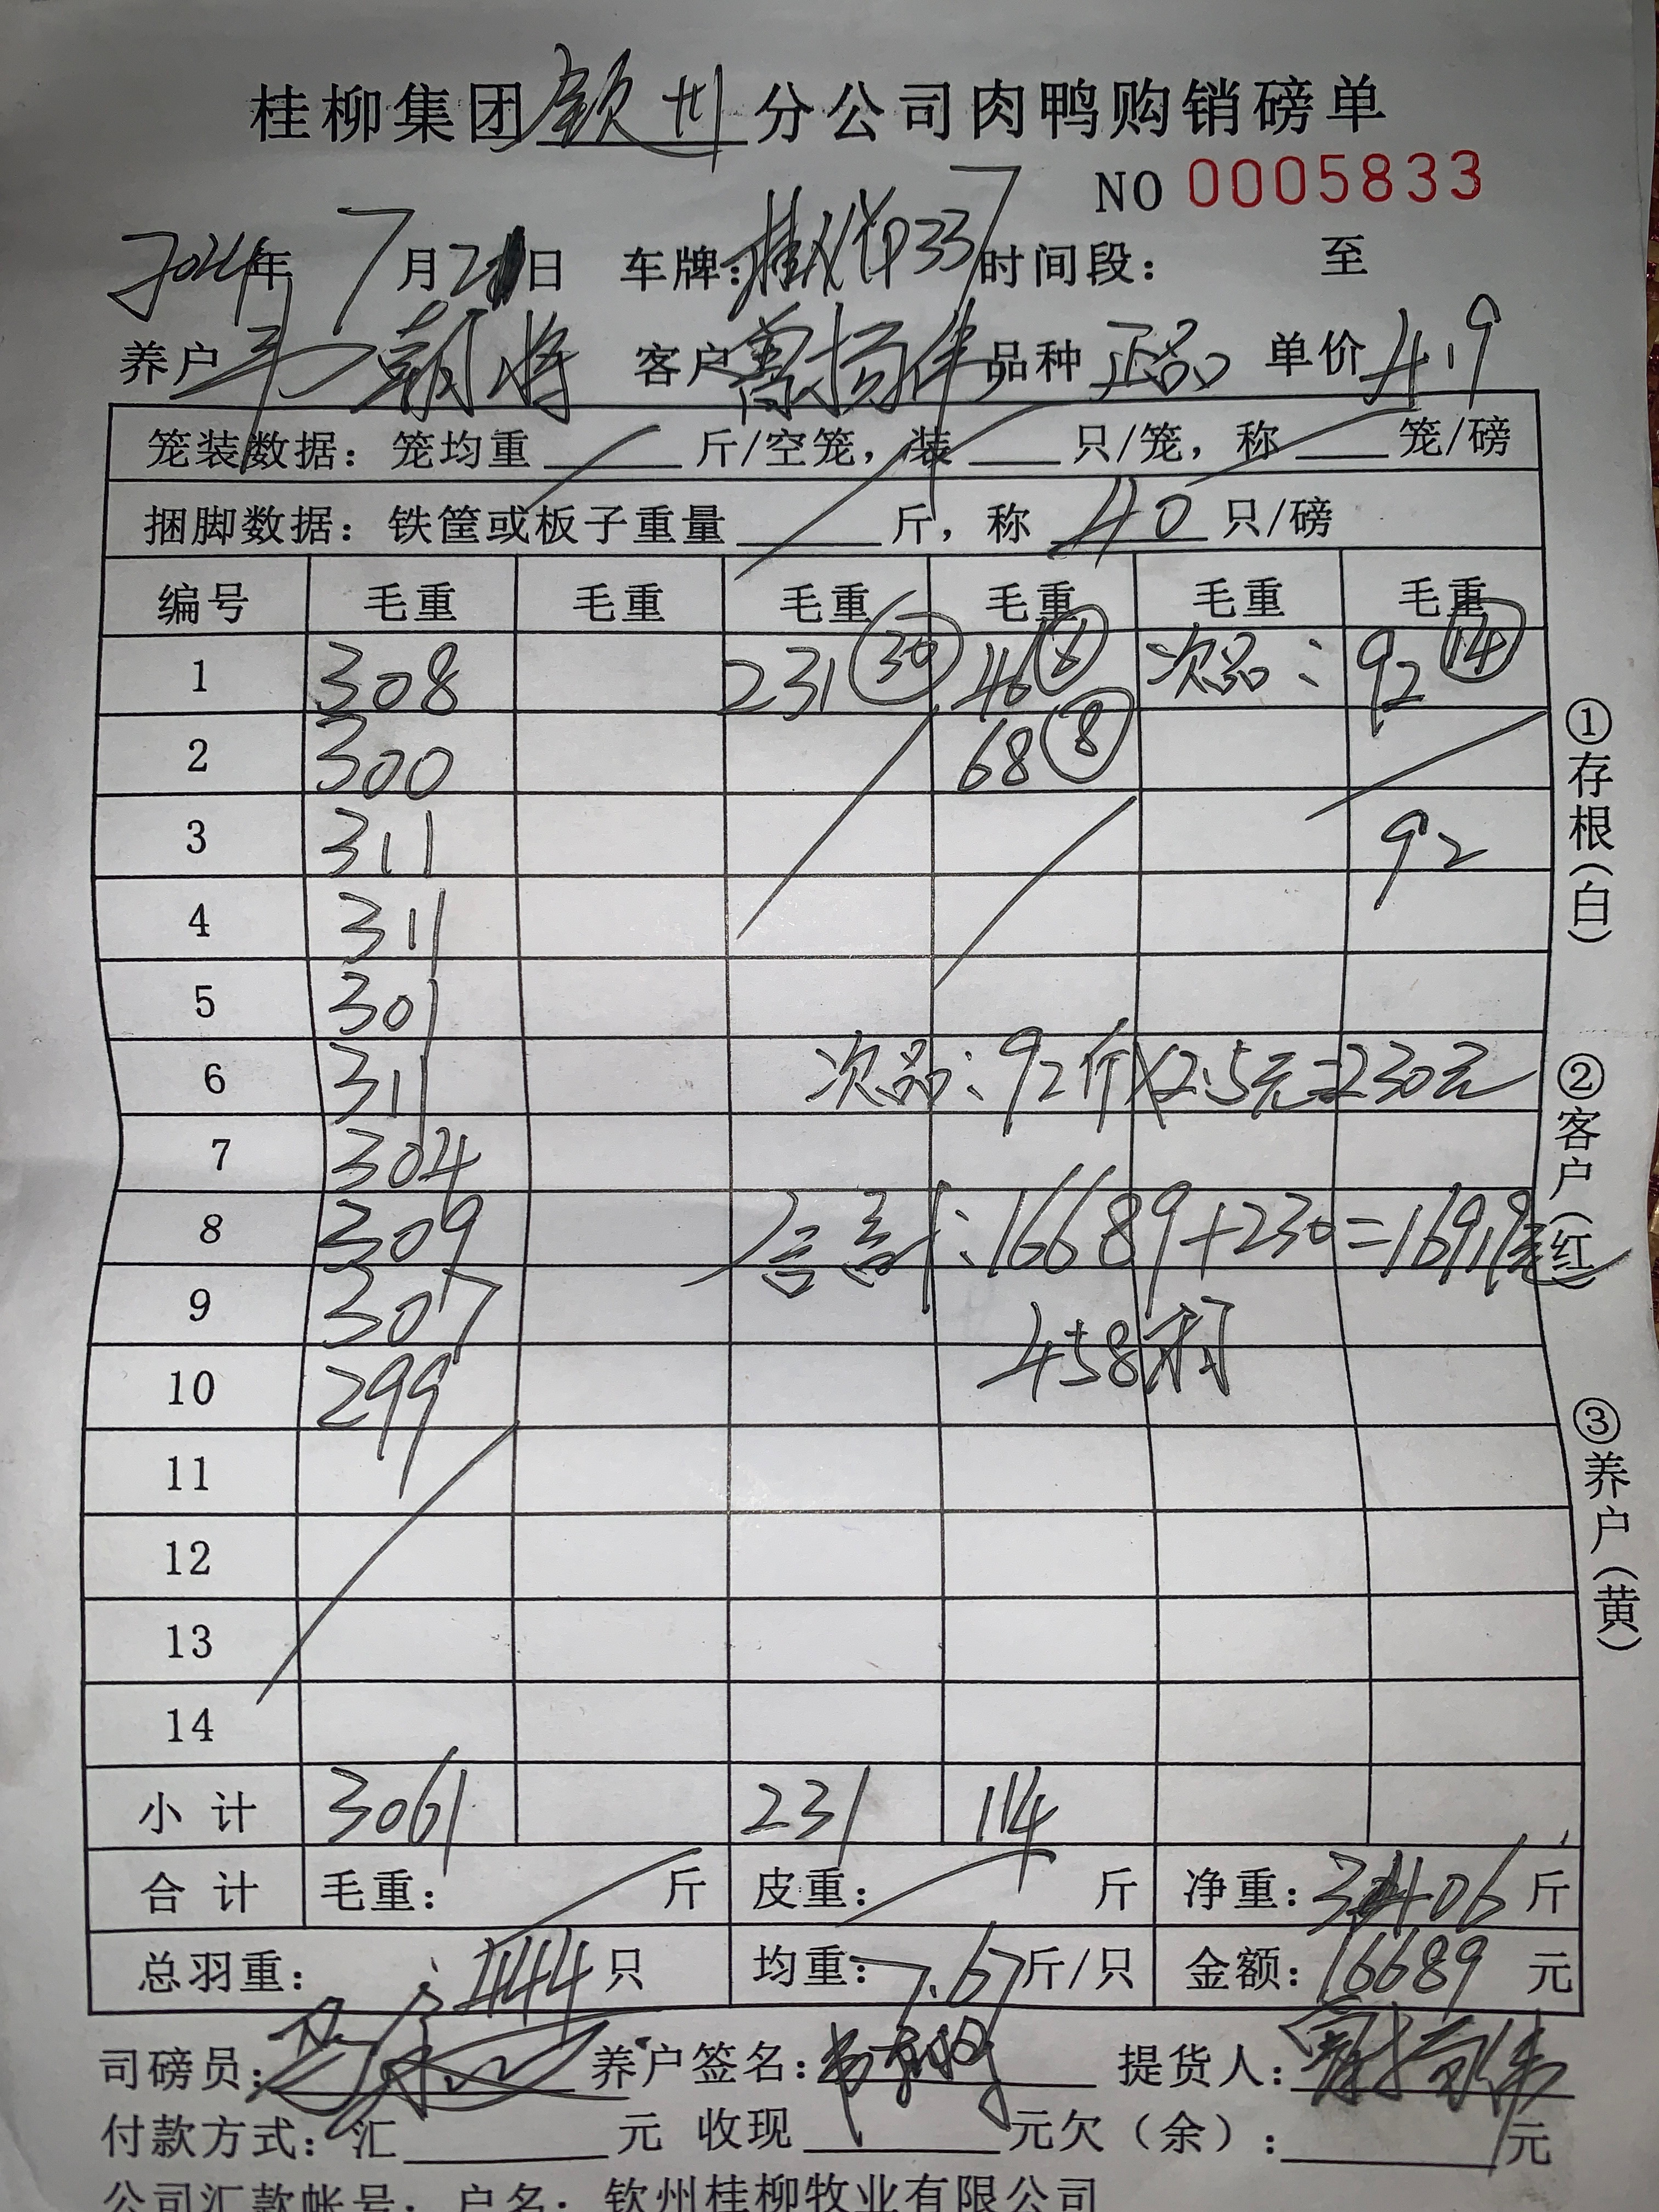 桂柳集团钦州分公司肉鸭购销磅单
NO 0005833
2024年7月2日 车牌: 时间段: 至
养户 朝将 客户 品种 正品 单价 4.9
笼装数据: 笼均重 斤/空笼, 装 只/笼, 称 笼/磅
捆脚数据: 铁筐或板子重量 斤, 称 40 只/磅
编号 毛重 毛重 毛重 毛重 毛重 毛重
1 308 231 30 46 6 次品: 92 14
2 300 68 8
3 311 92
4 311
5 301
6 311 次品: 92斤×2.5元=230元
7 304
8 309 合计: 16689+230=16919元
9 307 458羽
10 299
11
12
13
14
小计 3061 231 114
合计 毛重: 斤 皮重: 斤 净重: 3406 斤
总羽重: 444 只 均重: 7.67 斤/只 金额: 16689 元
司磅员: 养户签名: 提货人:
付款方式: 汇 元 收现 元欠(余): 元
公司汇款帐号: 户名: 钦州桂柳牧业有限公司
①存根(白)
②客户(红)
③养户(黄)